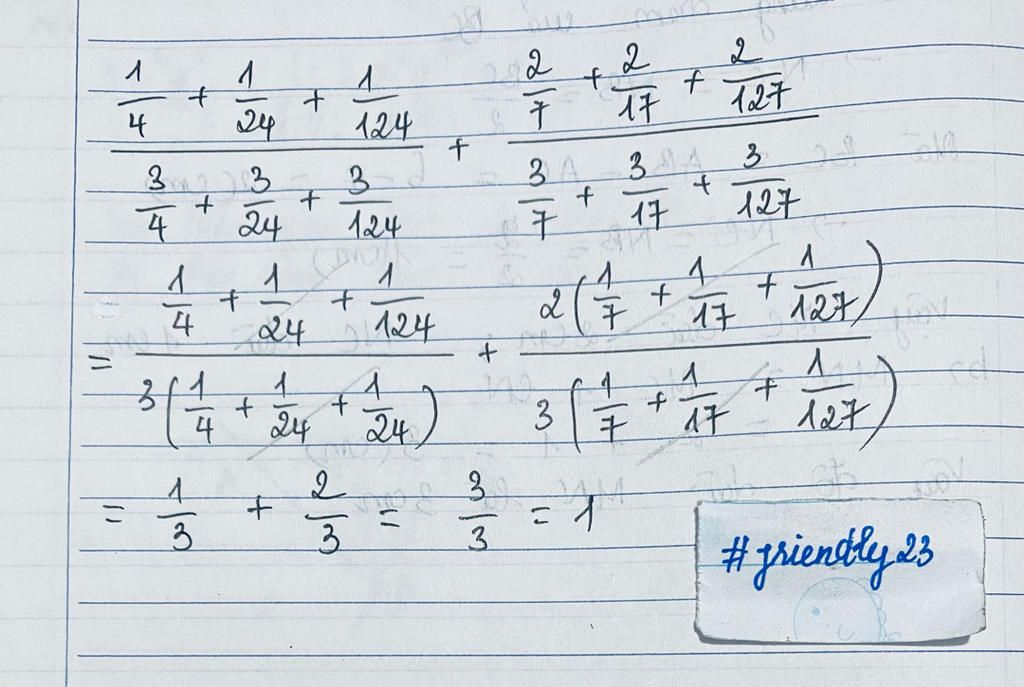 \frac{\frac{1}{4} + \frac{1}{24} + \frac{1}{124}}{\frac{3}{4} + \frac{3}{24} + \frac{3}{124}} + \frac{\frac{2}{7} + \frac{2}{17} + \frac{2}{127}}{\frac{3}{7} + \frac{3}{17} + \frac{3}{127}}
= \frac{\frac{1}{4} + \frac{1}{24} + \frac{1}{124}}{3(\frac{1}{4} + \frac{1}{24} + \frac{1}{24})} + \frac{2(\frac{1}{7} + \frac{1}{17} + \frac{1}{127})}{3(\frac{1}{7} + \frac{1}{17} + \frac{1}{127})}
= \frac{1}{3} + \frac{2}{3} = \frac{3}{3} = 1
#friendly23